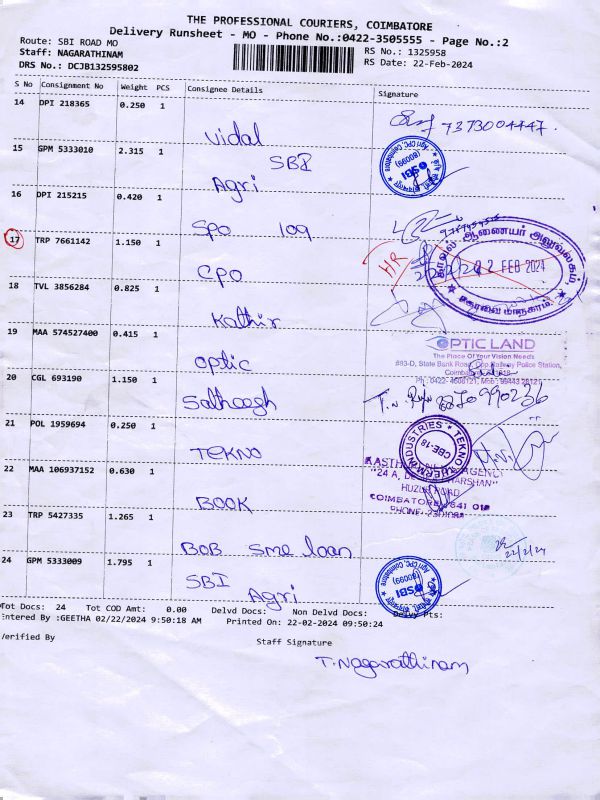 THE PROFESSIONAL COURIERS, COIMBATORE
Delivery Runsheet - MO - Phone No.:0422-3505555 - Page No.:2
Route: SBI ROAD MO
RS No.: 1325958
Staff: NAGARATHINAM
RS Date: 22-Feb-2024
DRS No.: DCJB132595802
S No Consignment No Weight PCS Consignee Details Signature
14 DPI 218365 0.250 1
Vidal
7373004447
15 GPM 5333010 2.315 1
SBI
Agri
SBI
(80099)
Agri CPC, Coimbatore
16 DPI 215215 0.420 1
Spo 109
17 TRP 7661142 1.150 1
CPO
HR
காவல் ஆணையர் அலுவலகம்
22 FEB 2024
கோவை மாநகரம்
18 TVL 3856284 0.825 1
Kathir
19 MAA 574527400 0.415 1
Optic
OPTIC LAND
The Place Of Your Vision Needs
#93-D, State Bank Road, Opp.Railway Police Station,
20 CGL 693190 1.150 1
Satheesh
21 POL 1959694 0.250 1
TEKNO
TEKNO THERM INDUSTRIES
CBE-18
22 MAA 106937152 0.630 1
BOOK
AGENCY
HUZUR ROAD
COIMBATORE 641 018
23 TRP 5427335 1.265 1
BOB Sme loan
22/2/24
24 GPM 5333009 1.795 1
SBI Agri
SBI
(80099)
Agri CPC, Coimbatore
Tot Docs: 24 Tot COD Amt: 0.00 Delvd Docs: Non Delvd Docs: Delvy Pts:
Entered By :GEETHA 02/22/2024 9:50:18 AM Printed On: 22-02-2024 09:50:24
Verified By
Staff Signature
T. Nagarathinam